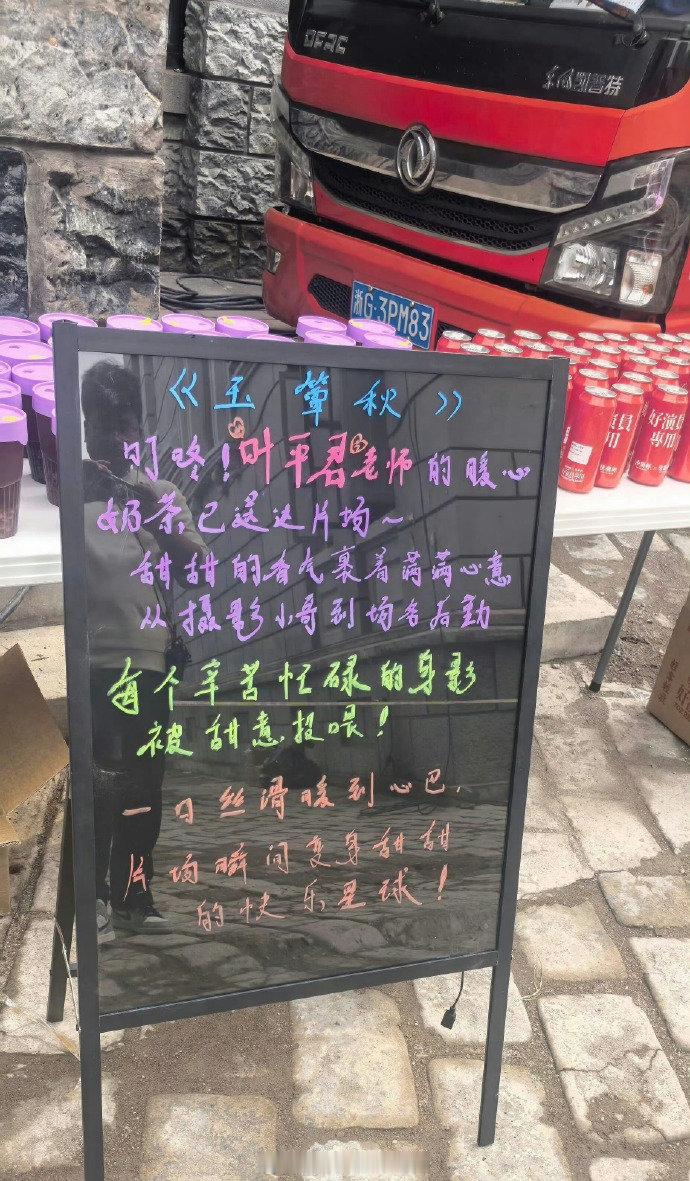 DFAC
东风凯普特
浙G·3PM83
好演員
專用
《玉簟秋》
叮咚！叶平君老师的暖心
奶茶已送达片场～
甜甜的香气裹着满满心意
从摄影小哥到场务
每个辛苦忙碌的身影
被甜意投喂！
一口丝滑暖到心巴，
片场瞬间变身甜甜
的快乐星球！